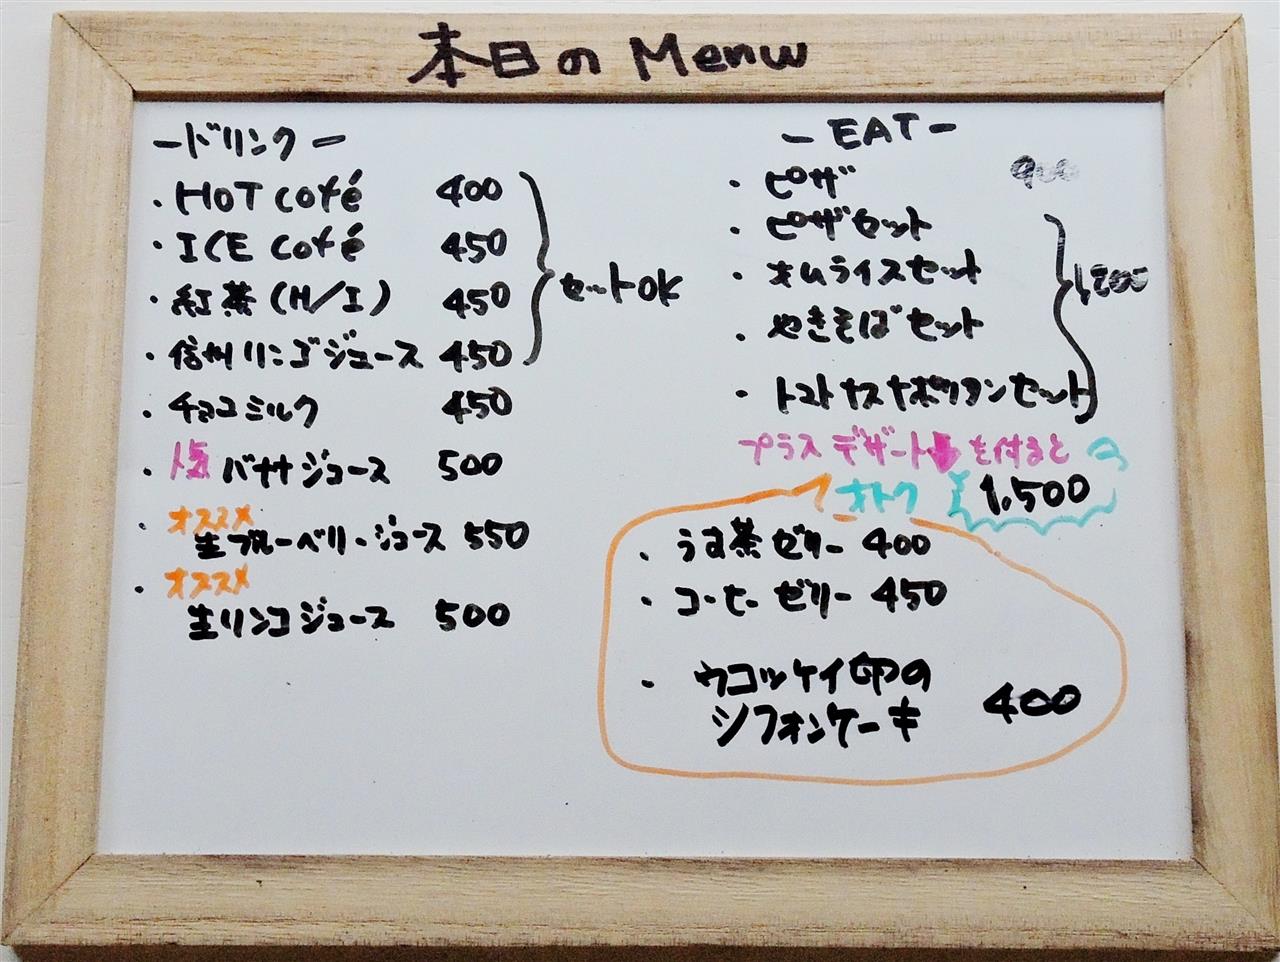 本日のMenu
ードリンクー
・HOT café 400
・ICE café 450
・紅茶(H/I) 450
・信州リンゴジュース 450
セットOK
・チョコミルク 450
・人気 バナナジュース 500
・オススメ
生ブルーベリージュース 550
・オススメ
生リンゴジュース 500
ーEATー
・ピザ 900
・ピザセット
・オムライスセット
・やきそばセット
・トマトナスナポリタンセット
プラスデザート⬇を付ると
オトク 1,500
・うま茶ゼリー 400
・コーヒーゼリー 450
・ウコッケイ卵の
シフォンケーキ 400